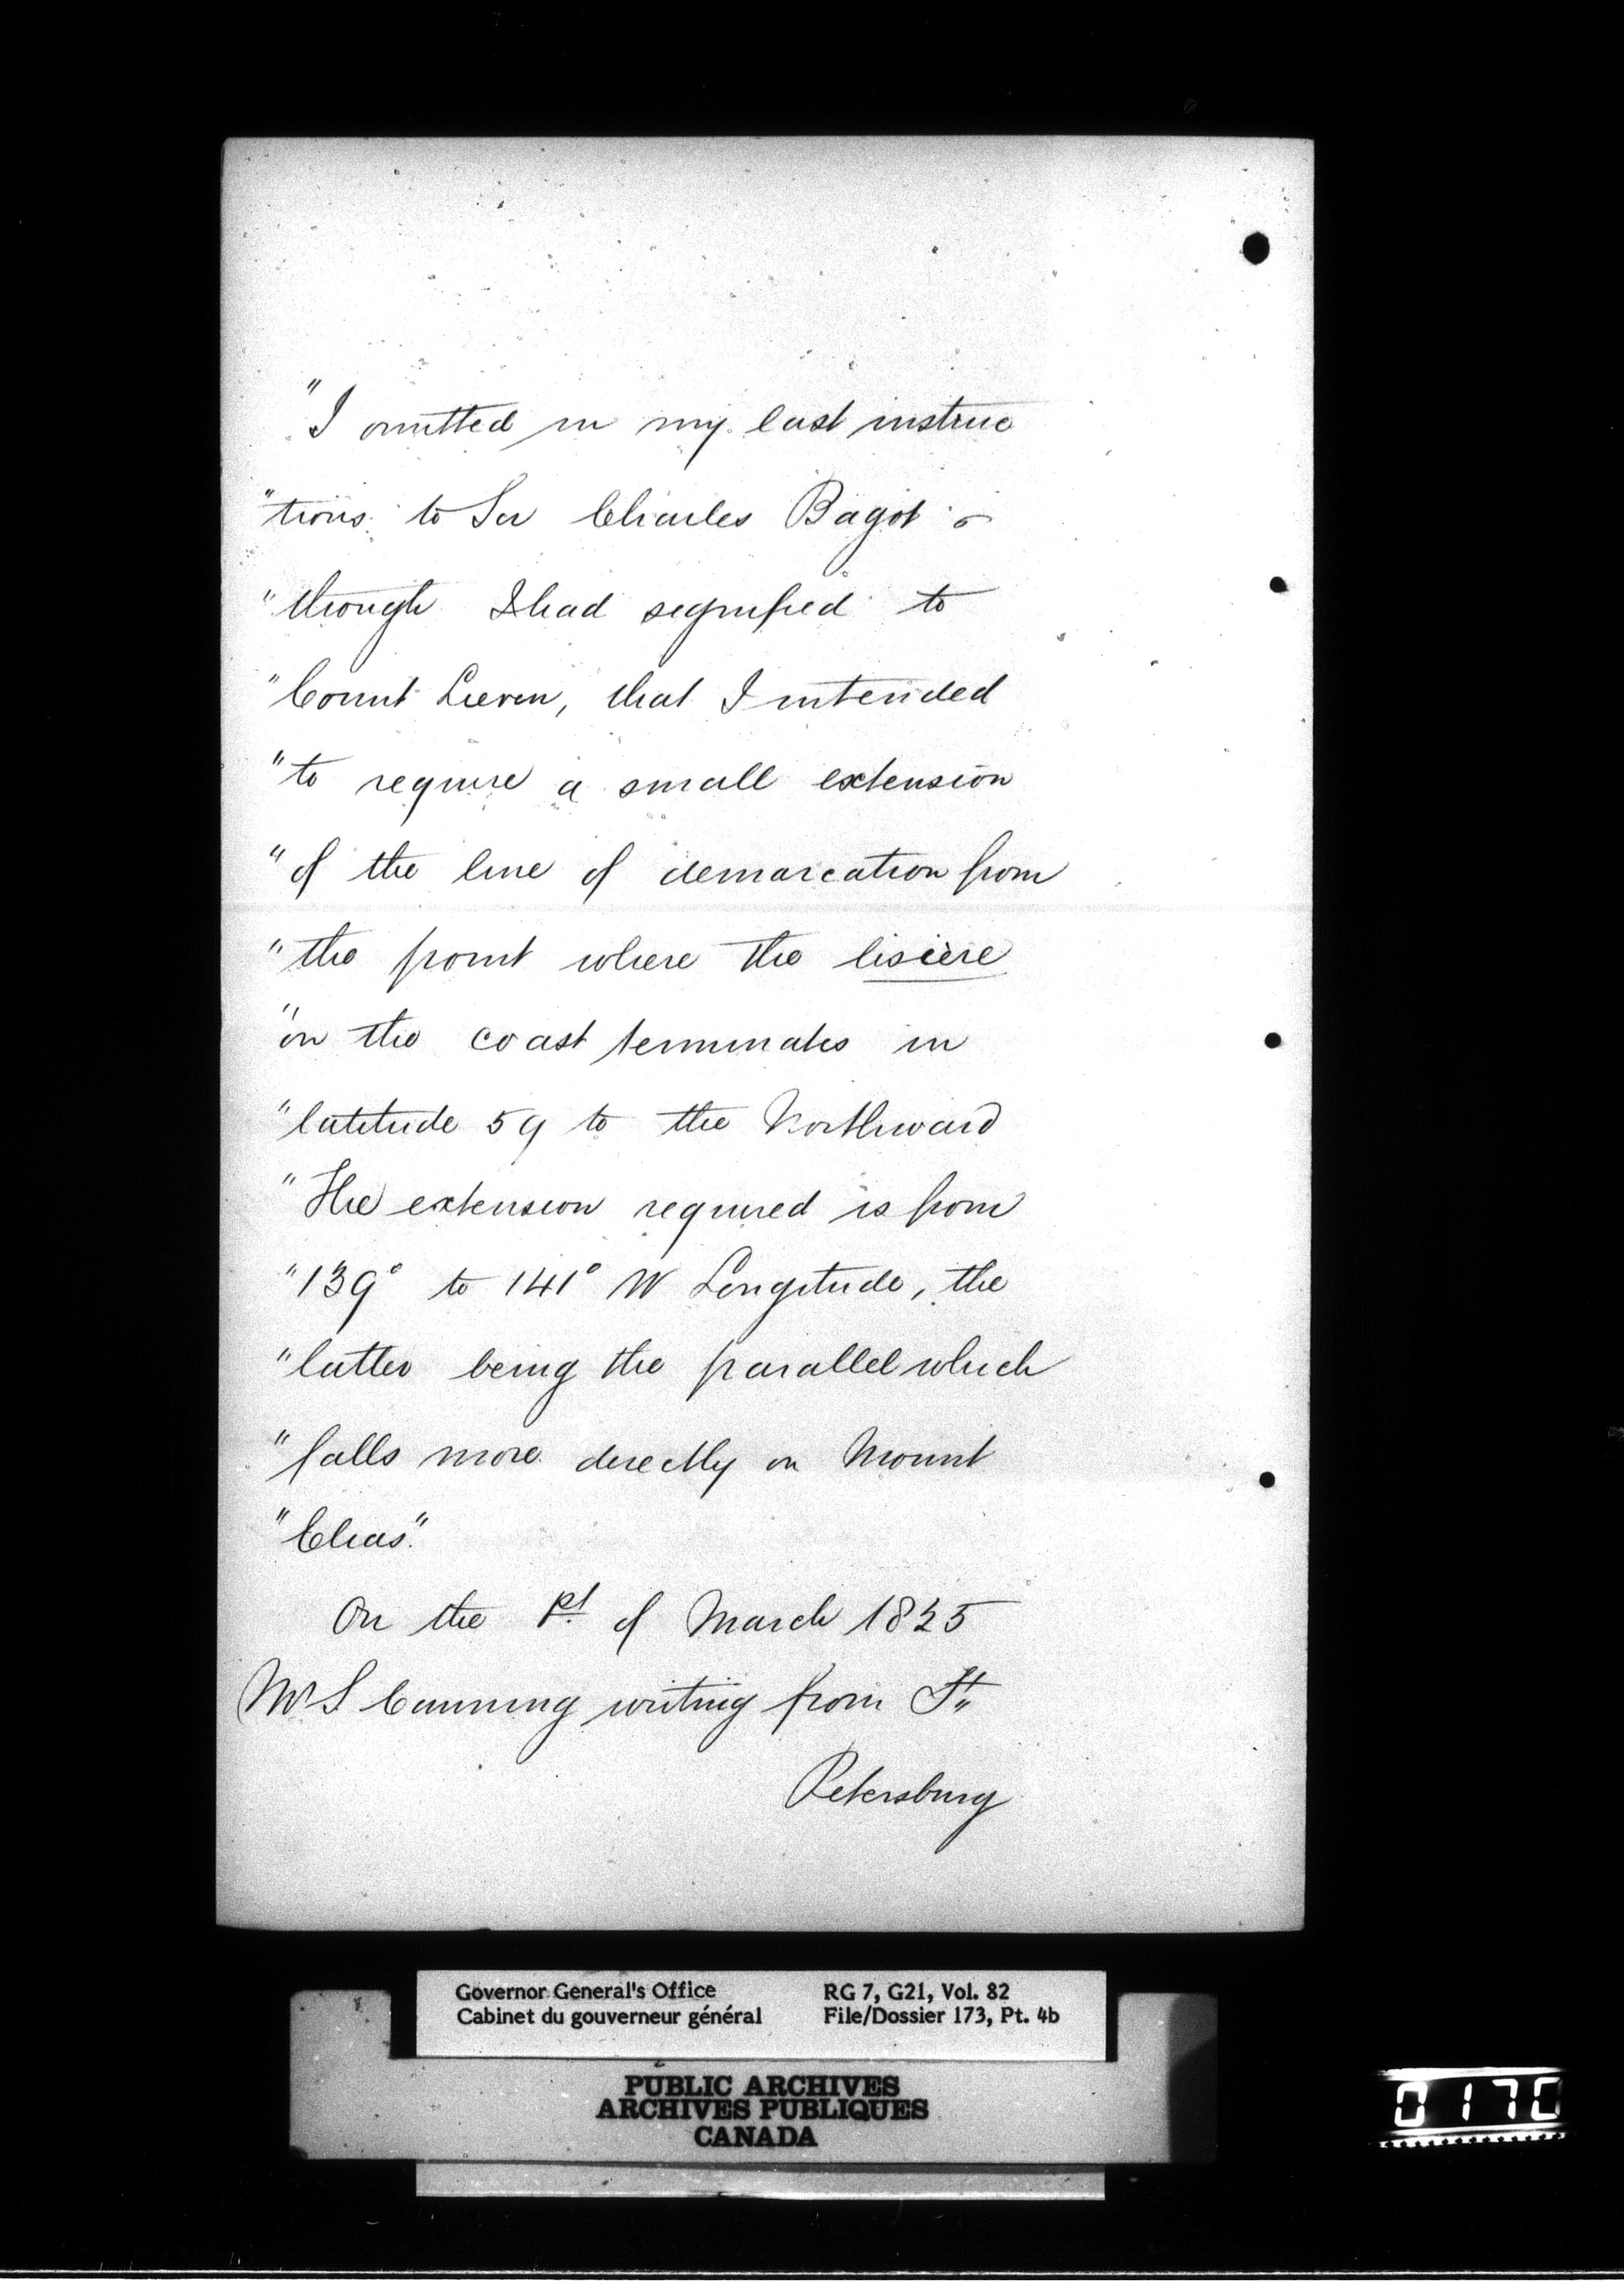 "I omitted in my last instruc
"tions to Sir Charles Bagot
"though I had signified to
"Count Lieven, that I intended
"to require a small extension
"of the line of demarcation from
"the point where the lisière
"on the coast terminates in
"latitude 59 to the Northward
"The extension required is from
"139° to 141° W Longitude, the
"latter being the parallel which
"falls more directly on Mount
"Elias".
On the 1st of March 1825
Mr S Canning writing from St.
Petersburg
Governor General's Office
Cabinet du gouverneur général
RG 7, G21, Vol. 82
File/Dossier 173, Pt. 4b
PUBLIC ARCHIVES
ARCHIVES PUBLIQUES
CANADA
0170